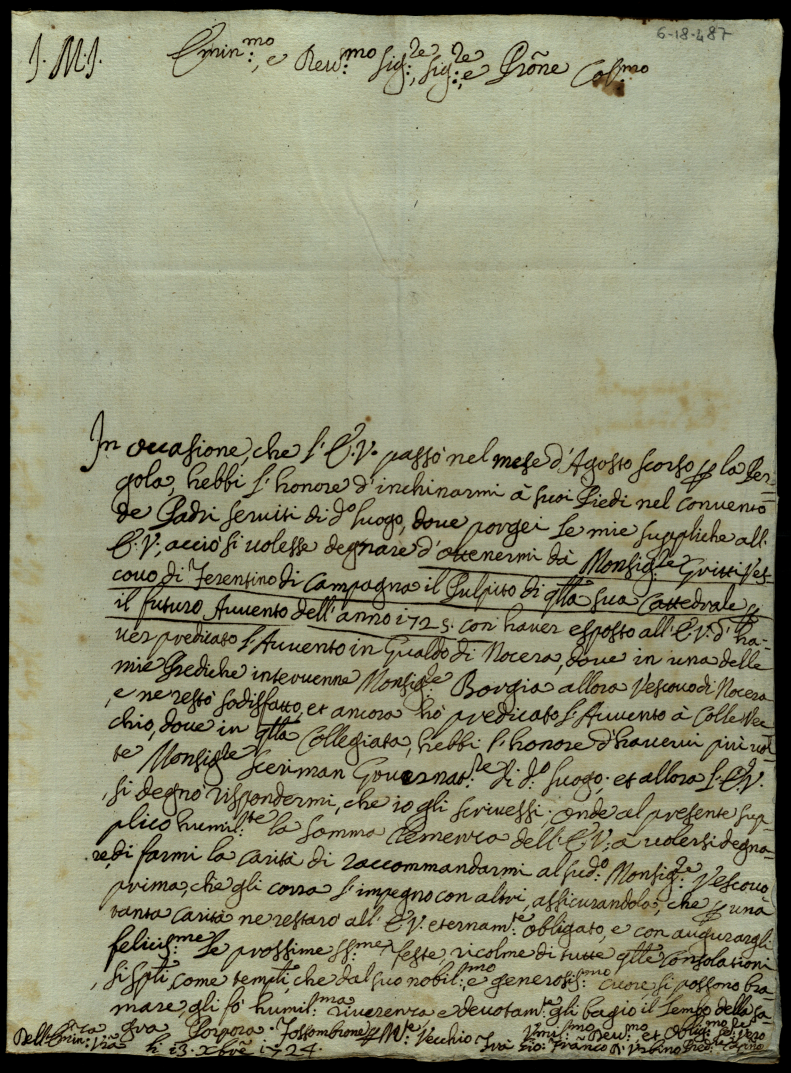 6-18-487
J. M. J. Emin:mo, e Reu:mo Sig:re, Sig:re, e Prõne Col:mo
In occasione, che l'E.V. passò nel mese d'Agosto scorso p la Per=
gola, hebbi l'honore d'inchinarmi à suoi Piedi nel convento
de Padri serviti di d.o luogo, dove porgei le mie suppliche all'
E.V., acciò si volesse degnare d'ottenermi dà Monsig:re Gritti Ves-
covo di Ferentino di Campagna il Pulpito di qlla sua Cattedrale p
il futuro Avvento dell'anno 1725. con haver esposto all'E.V. d'ha-
ver predicato l'Avvento in Gualdo di Nocera, dove in una delle
mie Prediche intervenne Monsig:re Borgia allora Vescovo di Nocera
, e ne restò sodisfatto, et ancora hò predicato l'Avvento à Colle Vec
chio, dove in qlla Collegiata, hebbi l'honore d'havervi più vol
te Monsig:re Sceriman Governat:re di d.o luogo; et allora l'E.V.
si degnò rispondermi, che io gli scrivessi; onde al presente sup-
plico humil:te la somma Clemenza dell'E.V; à volersi degna-
re, di farmi la carità di raccommandarmi al sud:o Monsig:re Vescovo
prima, che gli corra l'impegno con altri, assicurandola, che p una
tanta carità ne restarò all'E.V. eternam:te obligato, e con augurargli
felicis:me le prossime SS:me feste, ricolme di tutte qlle consolationi
, si spli, come templi, che dal suo nobil:mo e generosis:mo cuore si possono bra-
mare, gli fò humil:ma riverenza e devotam:te gli bagio il Lembo della Sa
gra Porpora. Fossombrone p M:te Vecchio
li 13. Xbre 1724.
Dell'Emin:za Vrã
Vmil:mo Dev:mo, et Oblig:mo Se:re Vero
Frà Gio: Franco d'Urbino Pred:re Capino